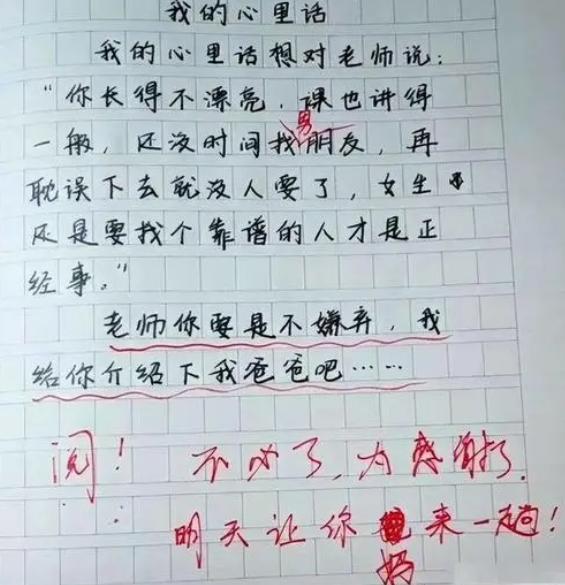 我的心里话
我的心里话想对老师说：
“你长得不漂亮，课也讲得
一般，还没时间找男朋友，再
耽误下去就没人要了，女生
还是要找个靠谱的人才是正
经事。”
老师你要是不嫌弃，我
给你介绍下我爸爸吧……
阅！ 不必了，为感谢了，
明天让你妈来一趟！